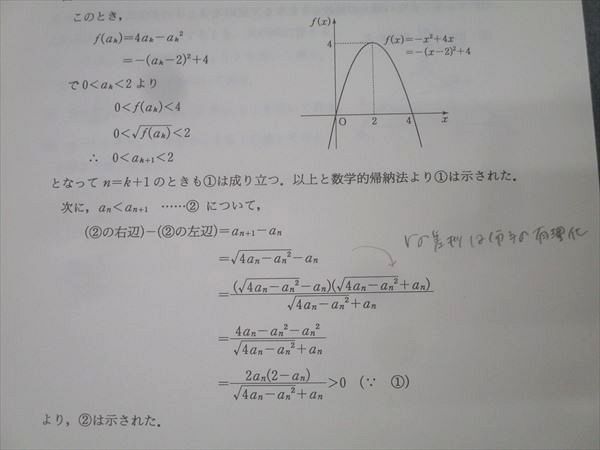 このとき,
f(aₖ)=4aₖ−aₖ²
=−(aₖ−2)²+4
で 0<aₖ<2 より
0<f(aₖ)<4
0<√f(aₖ)<2
∴ 0<aₖ₊₁<2
f(x)
4
f(x)=−x²+4x
=−(x−2)²+4
O 2 4 x
となって n=k+1 のときも①は成り立つ. 以上と数学的帰納法より①は示された.
次に, aₙ<aₙ₊₁ ……② について,
(②の右辺)−(②の左辺)=aₙ₊₁−aₙ
=√(4aₙ−aₙ²)−aₙ
=(√(4aₙ−aₙ²)−aₙ)(√(4aₙ−aₙ²)+aₙ)/(√(4aₙ−aₙ²)+aₙ)
=(4aₙ−aₙ²−aₙ²)/(√(4aₙ−aₙ²)+aₙ)
=2aₙ(2−aₙ)/(√(4aₙ−aₙ²)+aₙ)>0 (∵ ①)
より, ②は示された.
√の差
有理化